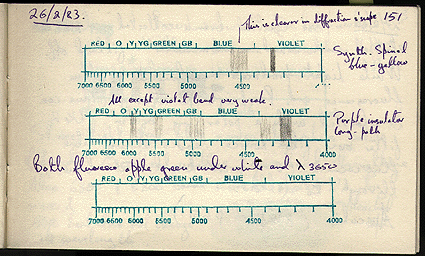 26/2/83.
This is clearer in diffraction scope 151
RED O Y YG GREEN GB BLUE VIOLET
Synth. Spinel
blue-yellow
7000 6500 6000 5500 5000 4500
All except violet band very weak.
RED O Y YG GREEN GB BLUE VIOLET
Purple insulator
long-path
7000 6500 6000 5500 5000 4500 4000
Both fluoresce apple green under white and λ 3650
RED O Y YG GREEN GB BLUE VIOLET
7000 6500 6000 5500 5000 4500 4000